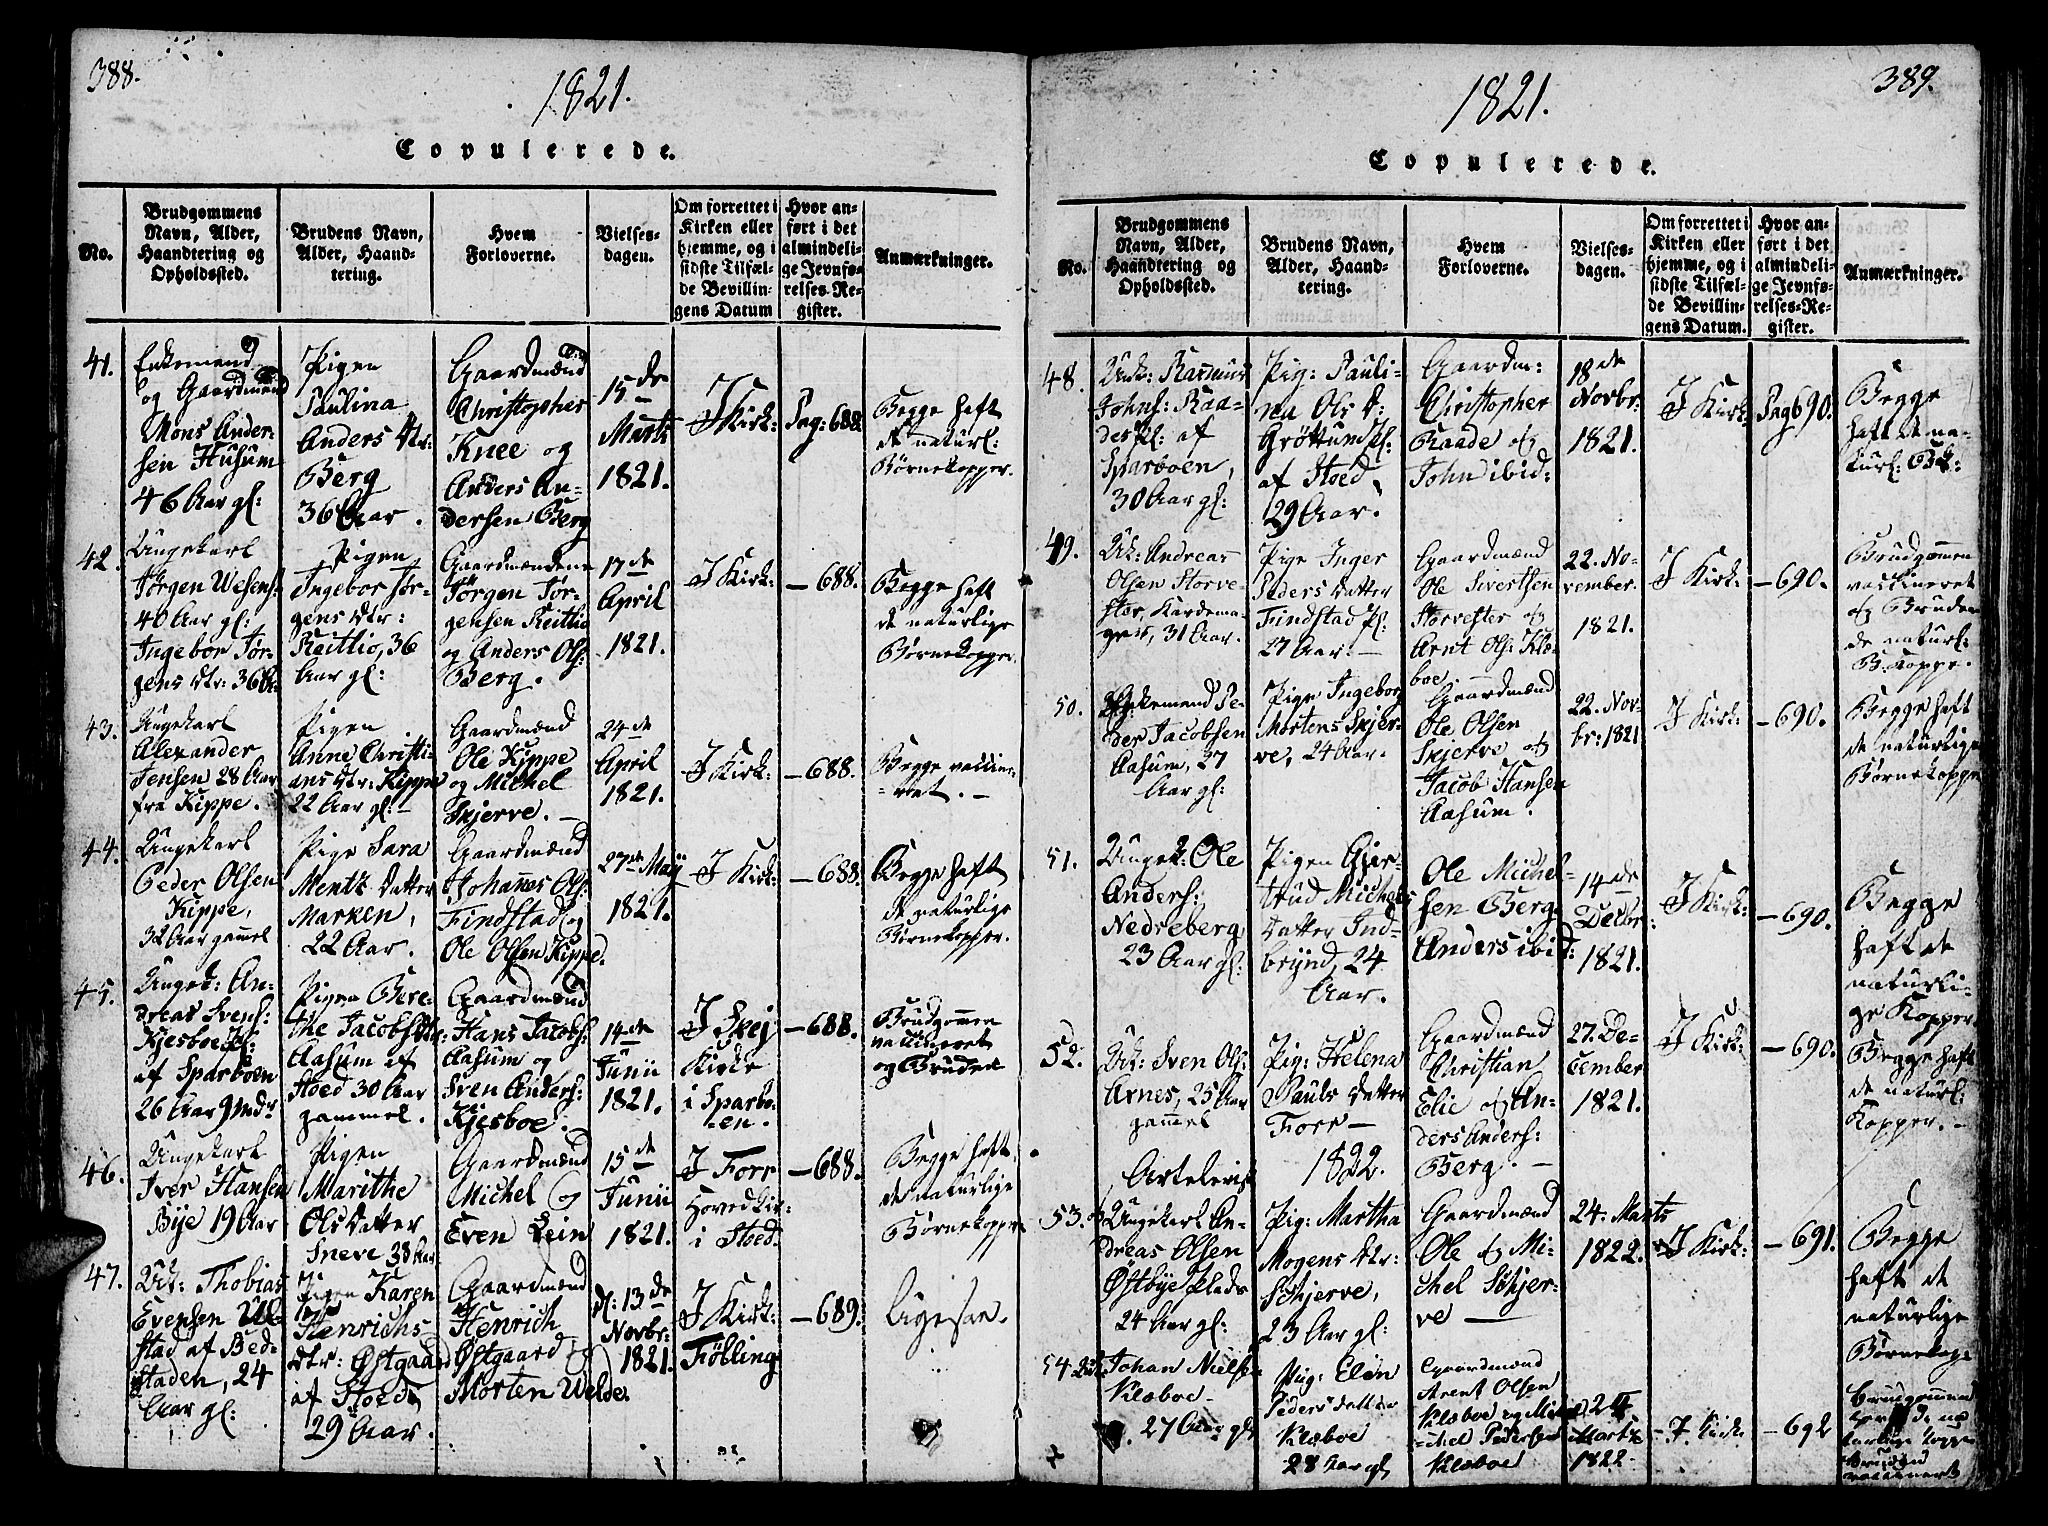 388.
1821.
Copulerede.
No.
Brudgommens Navn, Alder, Haandtering og Opholdssted.
Brudens Navn, Alder, Haandtering.
Hvem Forloverne.
Vielsesdagen.
Om forrettet i Kirken eller hjemme, og i sidste Tilfælde Bevillingens Datum
Hvor anført i det almindelige Jevnførelses-Register.
Anmærkninger.
41.
Enkemand
og Gaardmand
Mons Ander-
sen Husum
46 Aar gl:
Pigen
Paulina
Anders Dtr:
Berg
36 Aar.
Gaardmænd
Christopher
Knee og
Anders An-
dersen Berg
15de
Marts
1821.
I Kirk:
Pag: 688.
Begge haft
de naturl:
Børnekopper.
42.
Ungekarl
Jørgen Wesens:
40 Aar gl:
Ingebor Jør-
gens Dtr: 36 A:
Pigen
Ingebor Jør-
gens Dtr:
Reitlio, 36
Aar gl:
Gaardmændene
Jørgen Jør-
gensen Reitlio
og Anders Ols:
Berg.
17de
April
1821.
I Kirk:
— 688.
Begge haft
de naturlige
Børnekopper.
43.
Ungekarl
Alexander
Jensen 28 Aar
fra Kippe.
Pigen
Anne Christi-
ans Dtr: Kippe
22 Aar gl:
Gaardmænd
Ole Kippe
og Michel
Skjerve.
24de
April
1821.
I Kirk:
— 688.
Begge vaccine-
ret.
44.
Ungekarl
Peder Olsen
Kippe,
32 Aar gammel
Pige Sara
Mentz Datter
Marken,
22 Aar.
Gaardmænd
Johannes Ols:
Findstad og
Ole Olsen Kippe.
27de Maij
1821.
I Kirk:
— 688.
Begge haft
de naturlige
Børnekopper.
45.
Ungek: An-
dreas Svens:
Kjesboe Pl:
af Sparboen
26 Aar 9 Mdr
Pigen Bere-
the Jacobs Dtr:
Aasum af
Stoed 30 Aar
gammel.
Gaardmænd
Hans Jacobs:
Aasum og
Sven Anders:
Kjesboe.
14de
Junii
1821.
I Skej
Kirke
i Sparbo-
en.
— 688.
Brudgommen
vaccineret
og Bruden
46.
Ungekarl
Iver Hansen
Bye 19 Aar
Pigen
Marithe
Ols Datter
Sneve 38 Aar
Gaardmænd
Michel og
Even Lein
15de
Junii
1821.
I Forr
Hovedkir-
i Stoed
— 688.
Begge haft
de naturlige
Børnekopper
47.
Uk: Thobias
Evensen Ul-
stad af Bed-
staden, 24
Aar gl:
Pigen Karen
Henrichs
Dtr: Østgaard
af Stoed
29 Aar.
Gaardmænd
Henrich
Østgaard og
Morten Welde.
d: 13de
Novbr:
1821.
I Kirk:
Følling
— 689.
ligesaa.
389.
1821.
Copulerede.
No.
Brudgommens Navn, Alder, Haandtering og Opholdssted.
Brudens Navn, Alder, Haandtering.
Hvem Forloverne.
Vielsesdagen.
Om forrettet i Kirken eller hjemme, og i sidste Tilfælde Bevillingens Datum.
Hvor anført i det almindelige Jevnførelses-Register.
Anmærkninger.
48.
Unk: Rasmus
Johns: Raa-
der Pl: af
Sparboen,
30 Aar gl:
Pig: Pauli-
na Ols D:
Grøttum Pl:
af Stoed
29 Aar.
Gaardm:
Christopher
Raade og
John ibid:
18de
Novbr:
1821.
I Kirk:
Pag 690.
Begge
haft de na-
turl: BK:
49.
Uk: Andreas
Olsen Storve-
ster, Kardema-
ger, 31 Aar.
Pige Inger
Peders Datter
Findstad Pl:
27 Aar.
Gaardmænd
Ole Sivertsen
Storvester og
Arnt Ols: Klæ-
boe.
22. No-
vember.
1821.
I Kirk:
— 690.
Brudgommen
vaccineret
og Bruden
de naturl:
B. Koppe.
50.
Enkemand Pe-
der Jacobsen
Aasum, 37
Aar gl:
Pige Ingebor
Mortens Skjer-
ve, 24 Aar.
Gaardmænd
Ole Olsen
Skjerve og
Jacob Hansen
Aasum.
22. Nov-
br: 1821
I Kirk:
— 690.
Begge haft
de naturlige
Børnekopper
51.
Ungek: Ole
Anders:
Nedreberg
23 Aar gl:
Pigen Gjer-
trud Michels
Datter Ind-
brynd, 24
Aar.
Ole Michel-
sen Berg
Anders ibid:
14de
Decbr:
1821.
I Kirk:
— 690.
Begge
haft de
naturli-
ge Kopper.
52.
Uk: Sven Ols:
Arnes, 25 Aar
gammel
Pig: Helena
Pauls Datter
Forr —
Gaardmænd
Christian
Elie og An-
ders Anders:
Berg. —
27. De-
cember
1821.
I Kirk:
— 690.
Begge haft
de naturl:
Kopper. —
1822.
53.
Ungekarl An-
dreas Olsen
Østbye Plads
24 Aar gl:
Pig: Martha
Mogens Dtr:
Schjerve,
23 Aar gl:
Gaardmænd
Ole og Mi-
chel Schjer-
ve —
24. Marts
1822.
I Kirk:
— 691.
Begge
haft de
naturlige
Børnekopp:
54
Johan Niels:
Klæboe —
27 Aar gl:
Pig: Elen
Peders datter
Klæboe
28 Aar gl
Gaardmænd
Arent Olsen
Klæboe og Mi-
chel Pedersen
Klæboe
24
Marts
1822
— I. Kirk.
— 692
Brudgommen
de na
turlige Kopper
Bruden
vaccineret